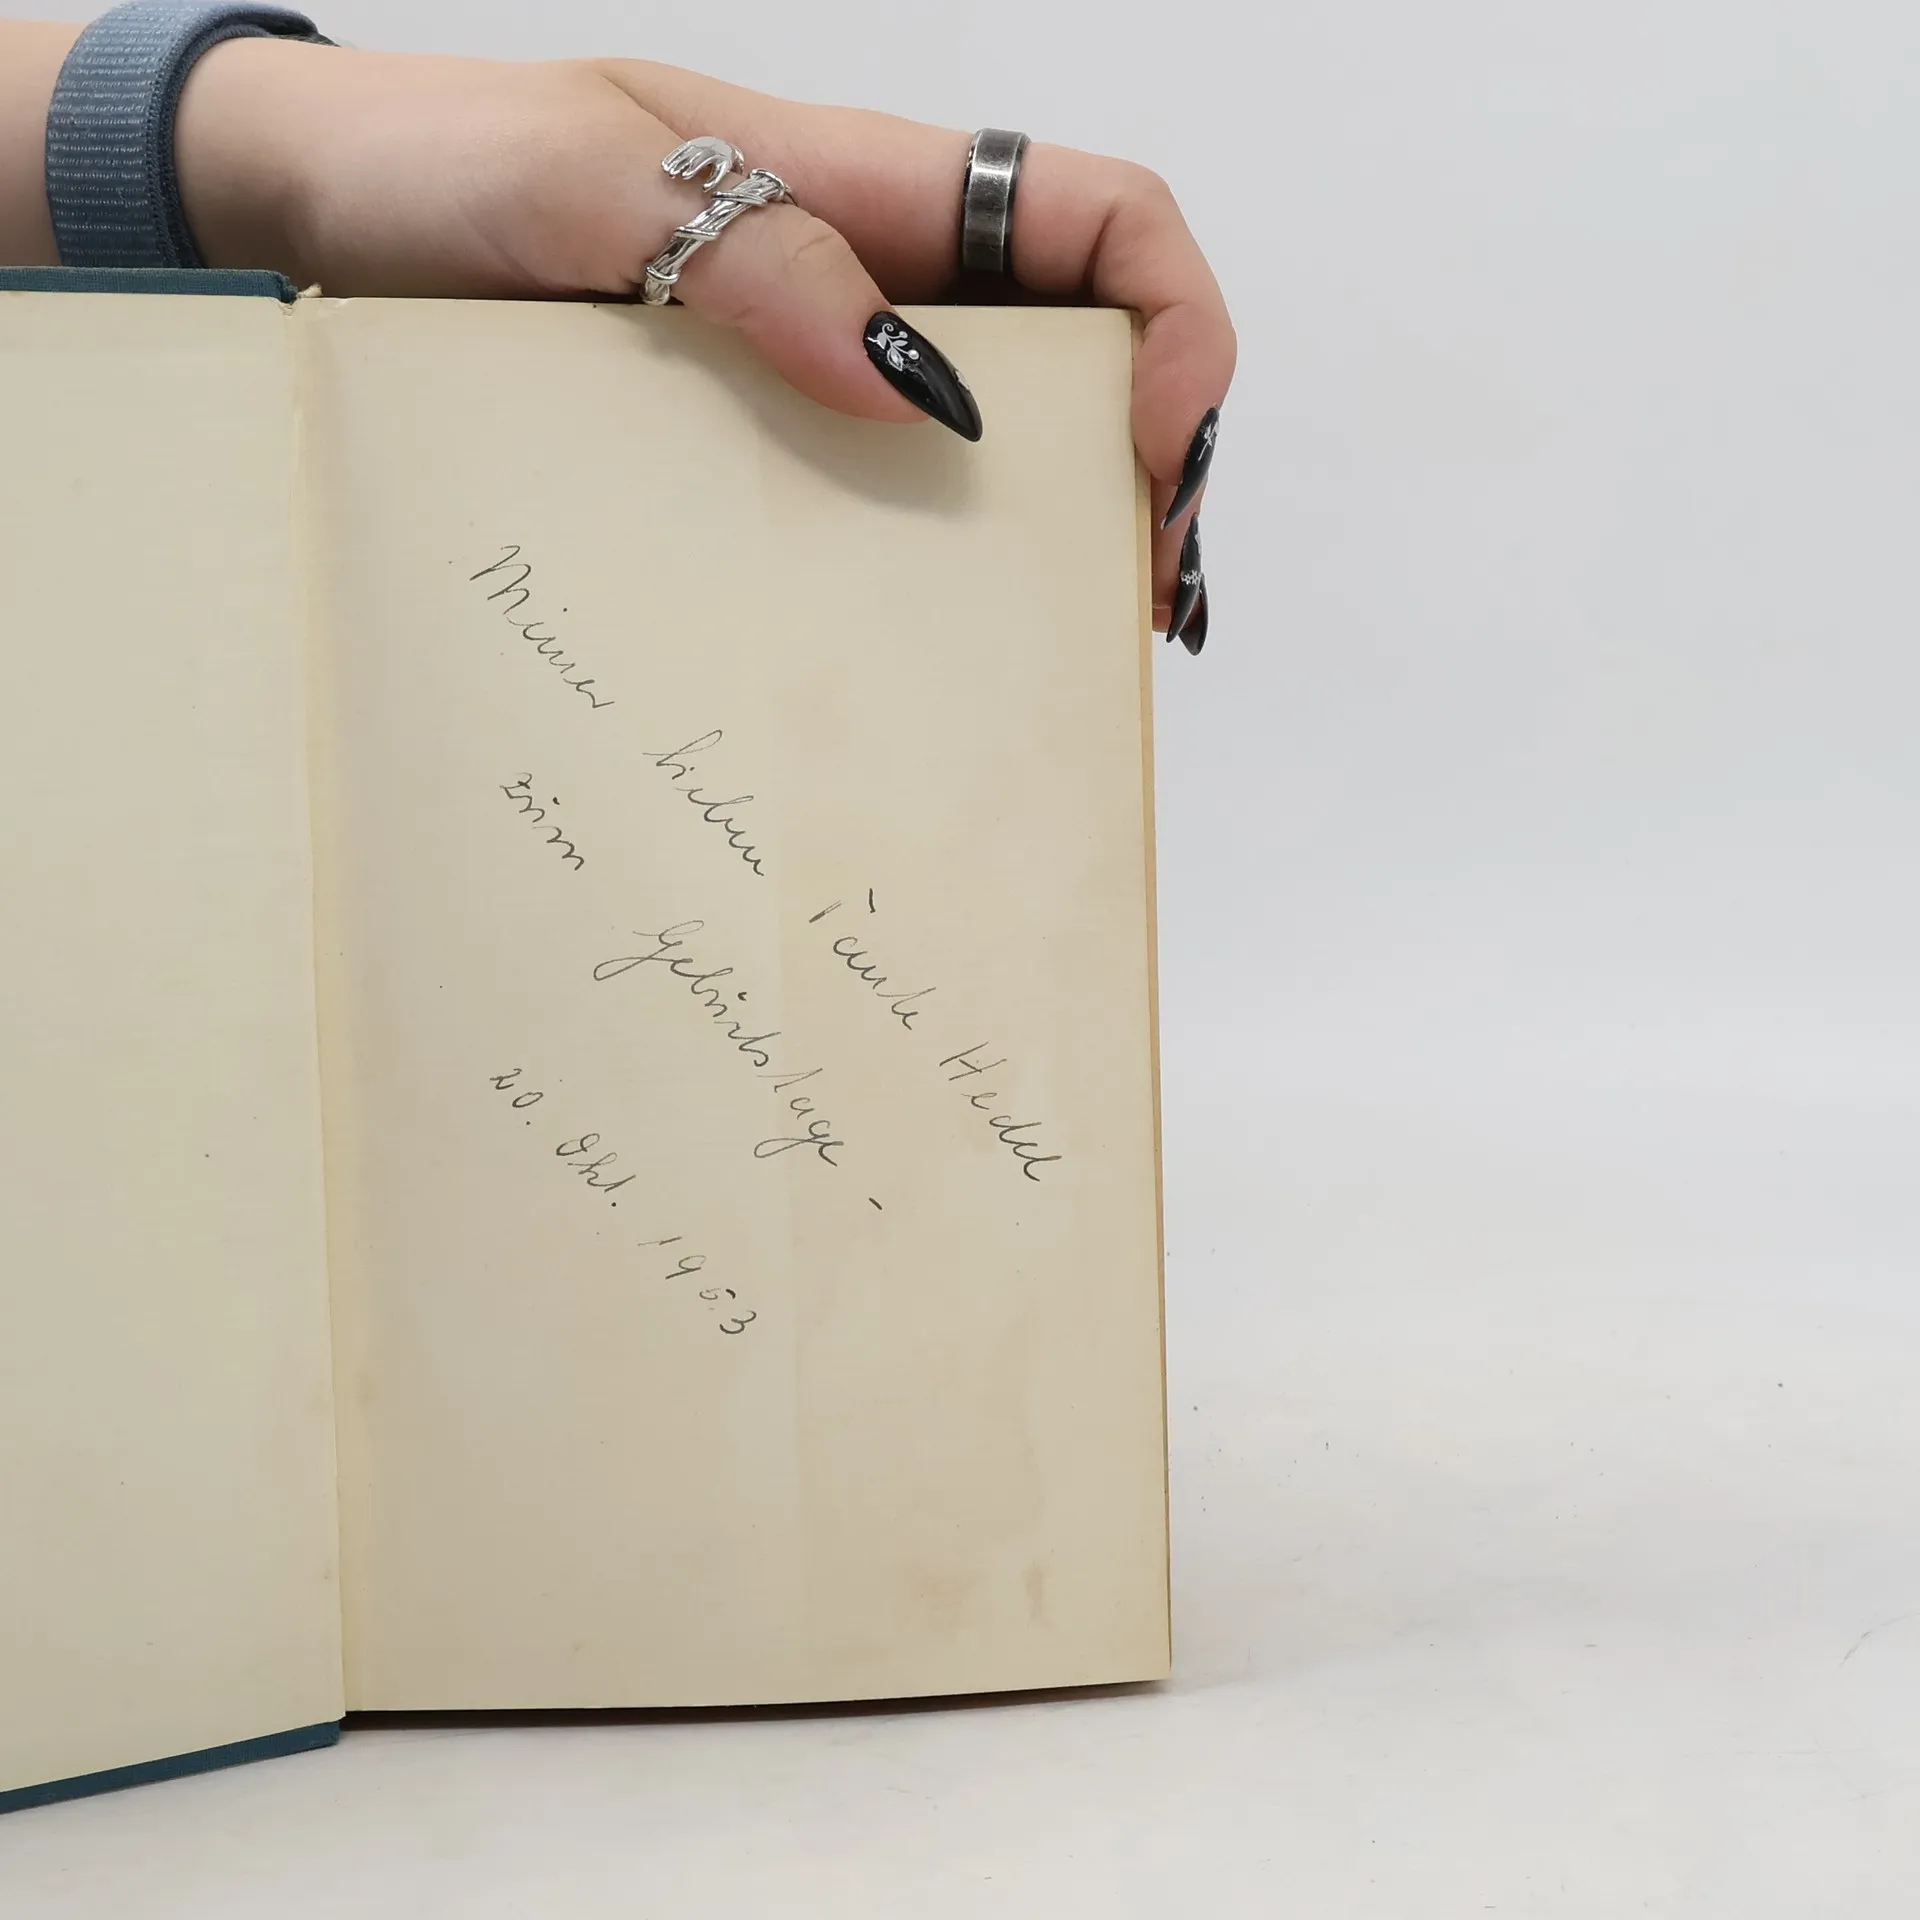 Meiner lieben Tante Hedel
zum Geburtstage -
20. Okt. 1953